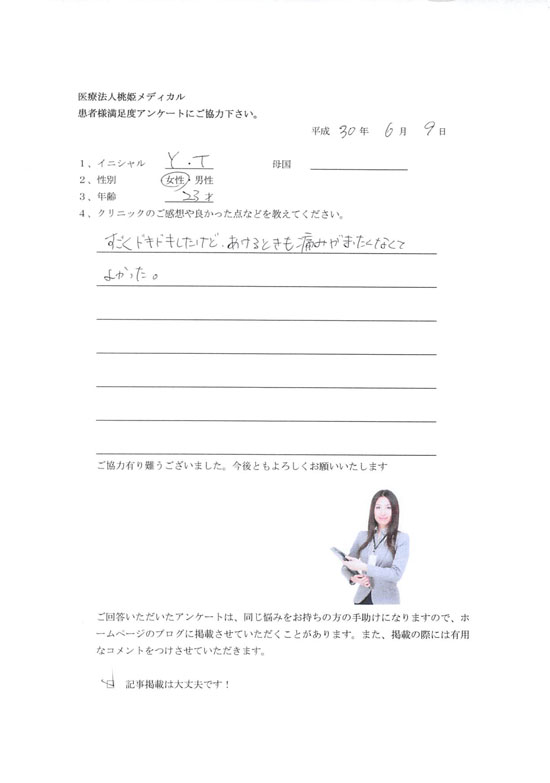 医療法人桃姫メディカル
患者様満足度アンケートにご協力下さい。
平成 30 年 6 月 9 日
1、イニシャル Y.T 母国
2、性別 女性・男性
3、年齢 23才
4、クリニックのご感想や良かった点などを教えてください。
すごくドキドキしたけど、あけるときも痛みがまったくなくて
よかった。
ご協力有り難うございました。今後ともよろしくお願いいたします
ご回答いただいたアンケートは、同じ悩みをお持ちの方の手助けになりますので、ホ
ームページのブログに掲載させていただくことがあります。また、掲載の際には有用
なコメントをつけさせていただきます。
記事掲載は大丈夫です！